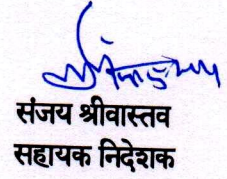 संजय श्रीवास्तव
सहायक निदेशक